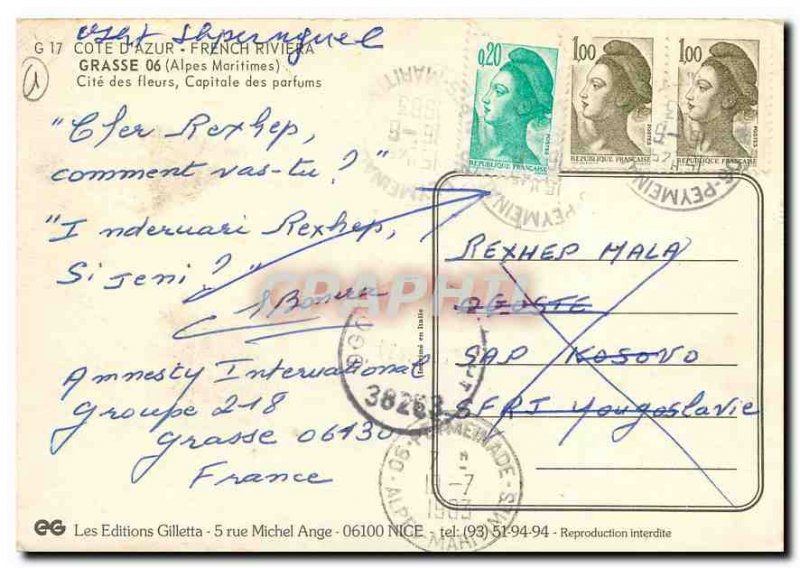 është shpërngulel
G 17 COTE D'AZUR - FRENCH RIVIERA
GRASSE 06 (Alpes Maritimes)
Cité des fleurs, Capitale des parfums
1
0,20
POSTES
REPUBLIQUE FRANÇAISE
1,00
POSTES
REPUBLIQUE FRANÇAISE
1,00
POSTES
REPUBLIQUE FRANÇAISE
"Cher Rexhep,
comment vas-tu?"
"I nderuari Rexhep,
Si jeni?"
Amnesty International
Groupe 218
Grasse 06130
France
REXHEP MALA
SAP KOSOVO
SFRJ Yougoslavie
Imprimé en Italie
38263
06-PEYMEINADE-
ALPES-MARITIMES
-7
1983
EG Les Editions Gilletta - 5 rue Michel Ange - 06100 NICE - tel: (93) 51-94-94 - Reproduction interdite